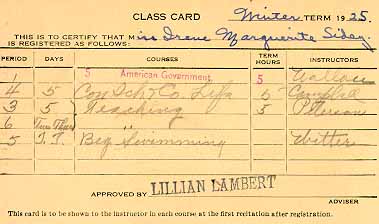 CLASS CARD Winter TERM 1925.
THIS IS TO CERTIFY THAT Miss Irene Marguerite Sidey
IS REGISTERED AS FOLLOWS:
PERIOD DAYS COURSES TERM HOURS INSTRUCTORS
1 5 American Government. 5 Wallace
4 5 Sch + Co. Life 5 Campbell
3 5 Teaching 5 Peterson
6 Tues Thur
5 T. T. Beg Swimming Witter
APPROVED BY LILLIAN LAMBERT
ADVISER
This card is to be shown to the instructor in each course at the first recitation after registration.